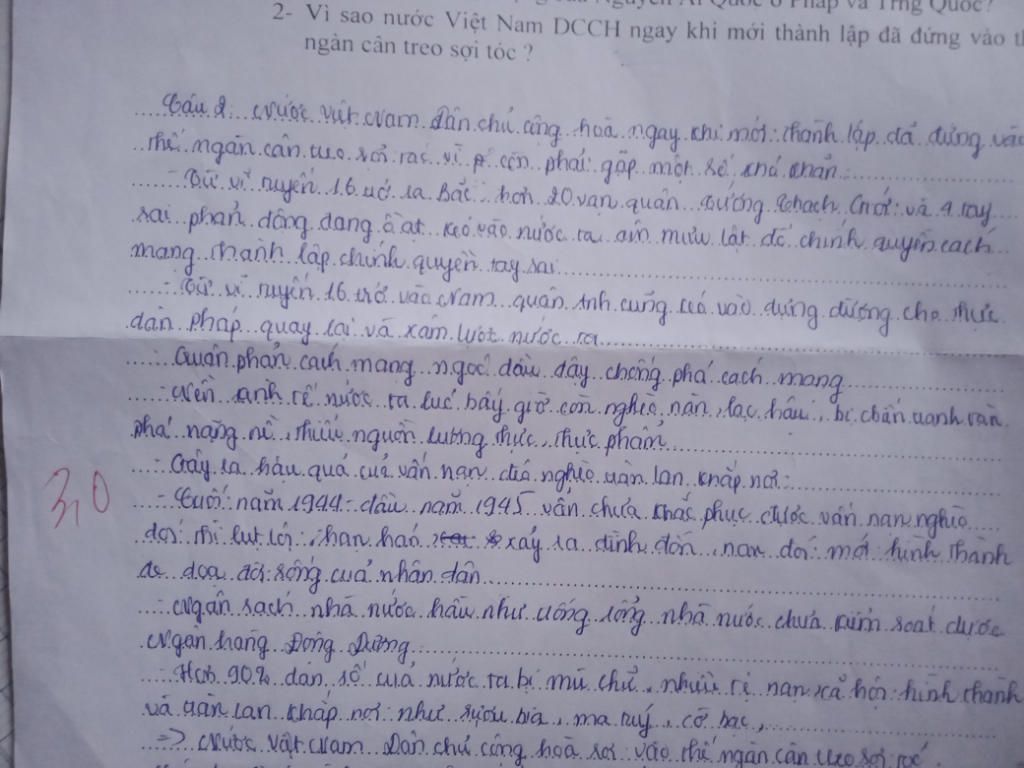 của Nguyễn Ái Quốc ở Pháp và Trng Quốc?
2- Vì sao nước Việt Nam DCCH ngay khi mới thành lập đã đứng vào
ngàn cân treo sợi tóc ?
Câu 2: Nước Việt Nam Dân chủ cộng hoà ngay khi mới thành lập đã đứng vào
thế ngàn cân treo sợi tóc vì còn phải gặp một số khó khăn:
- Từ vĩ tuyến 16 trở ra Bắc, hơn 20 vạn quân Tưởng Giới và tay
sai phản động đang ồ ạt kéo vào nước ta âm mưu lật đổ chính quyền cách
mạng thành lập chính quyền tay sai
- Từ vĩ tuyến 16 trở vào Nam quân Anh cũng kéo vào dựng đường cho thực
dân Pháp quay lại và xâm lượt nước ta
- Quân phản cách mạng ngoc đầu dậy chống phá cách mạng
- Nền kinh tế nước ta lúc bấy giờ còn nghèo nàn, lạc hậu, bị chiến tranh tàn
phá nặng nề, thiếu nguồn lương thực, thực phẩm
- Gây ra hậu quả của vấn nạn đói nghèo tràn lan khắp nơi
- Cuối năm 1944 - đầu năm 1945 vẫn chưa khắc phục được vấn nạn nghèo
đói thì lụt lội, hạn hán xảy ra đình đốn, nạn đói mới hình thành
đe doạ đời sống của nhân dân
- Ngân sách nhà nước hầu như trống rổng nhà nước chưa kiểm soát được
Ngân hàng Đông Dương
- Hơn 90% dân số của nước ta bị mù chữ, nhiều tệ nạn xã hội hình thành
và tràn lan khắp nơi như rượu bia, ma tuý, cờ bạc,
=> Nước Việt Nam Dân chủ cộng hoà rơi vào thế ngàn cân treo sợi tóc.
3,0